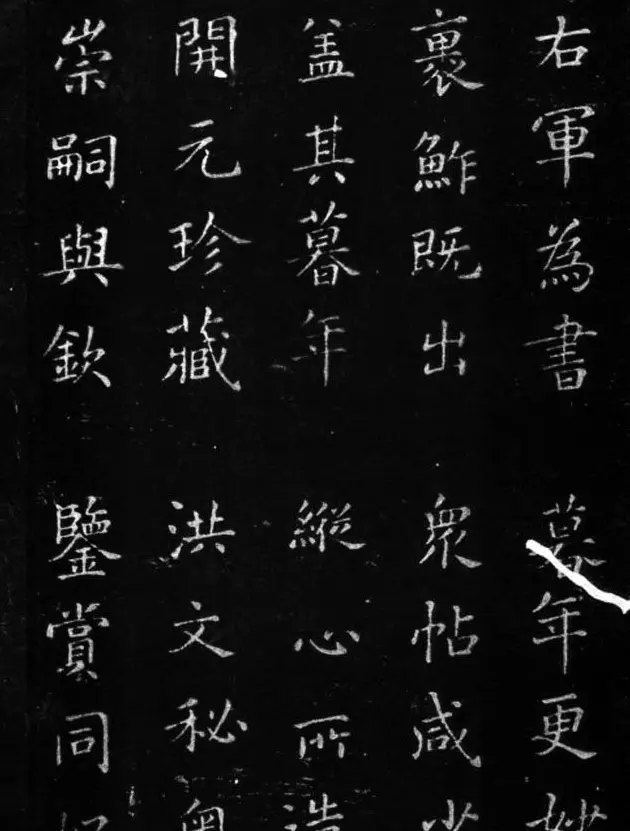 右軍為書 暮年更妙
裹鮓既出 衆帖咸
盖其暮年 縱心所造
開元珍藏 洪文秘奥
崇嗣與欽 鑒賞同